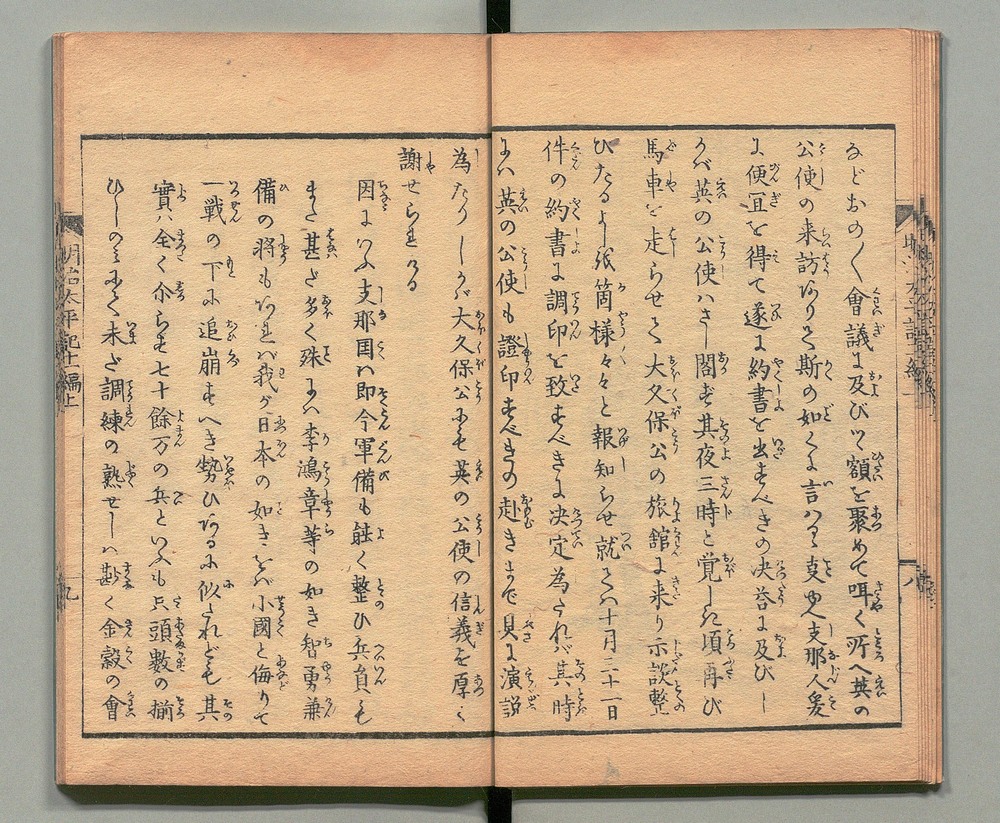 などおの〱會議に及びツヽ額を聚めて咡く所へ英の
公使の来訪ありて斯の如くに言ハるゝ支
に便宜を得て遂に約書を出すべきの决答に及びし
かバ英の公使ハさし閣き其夜三時と覚しき頃再び
馬車を走らせて大久保公の旅舘に来り示談整
ひたるよし箇様々々と報知らせ就てハ十月三十一日
件の約書に調印を致すべきに决定為たれバ其時
にハ英の公使も證印すべきの赴きまで具に演説
為たりしかバ大久保公にも英の公使の信義を厚く
謝せられける
因にいふ支那国ハ即今軍備も能く整ひ兵員も
また甚だ多く殊にハ李鴻章等の如き智勇兼
備の将もあれバ我が日本の如きをバ小國と侮りて
一戦の下に追崩すべき勢ひあるに似たれども其
實ハ全く尒らず七十餘万の兵といふも兵頭數の揃
ひしのミにて未だ調練の熟せしハ尠く金穀の會
明治太平記十一編上
九
八